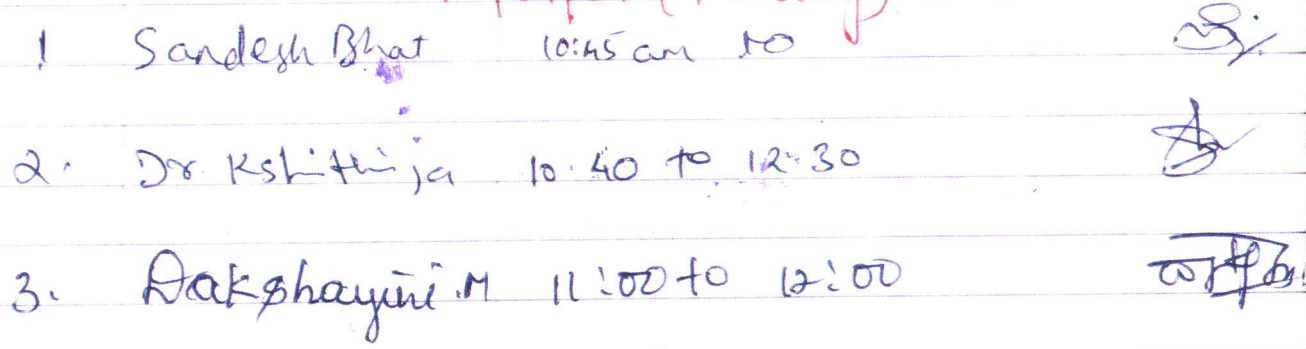 1 Sandesh Bhat 10:45 am to
2. Dr. Kshithija 10.40 to 12.30
3. Dakshayini.M 11:00 to 12:00